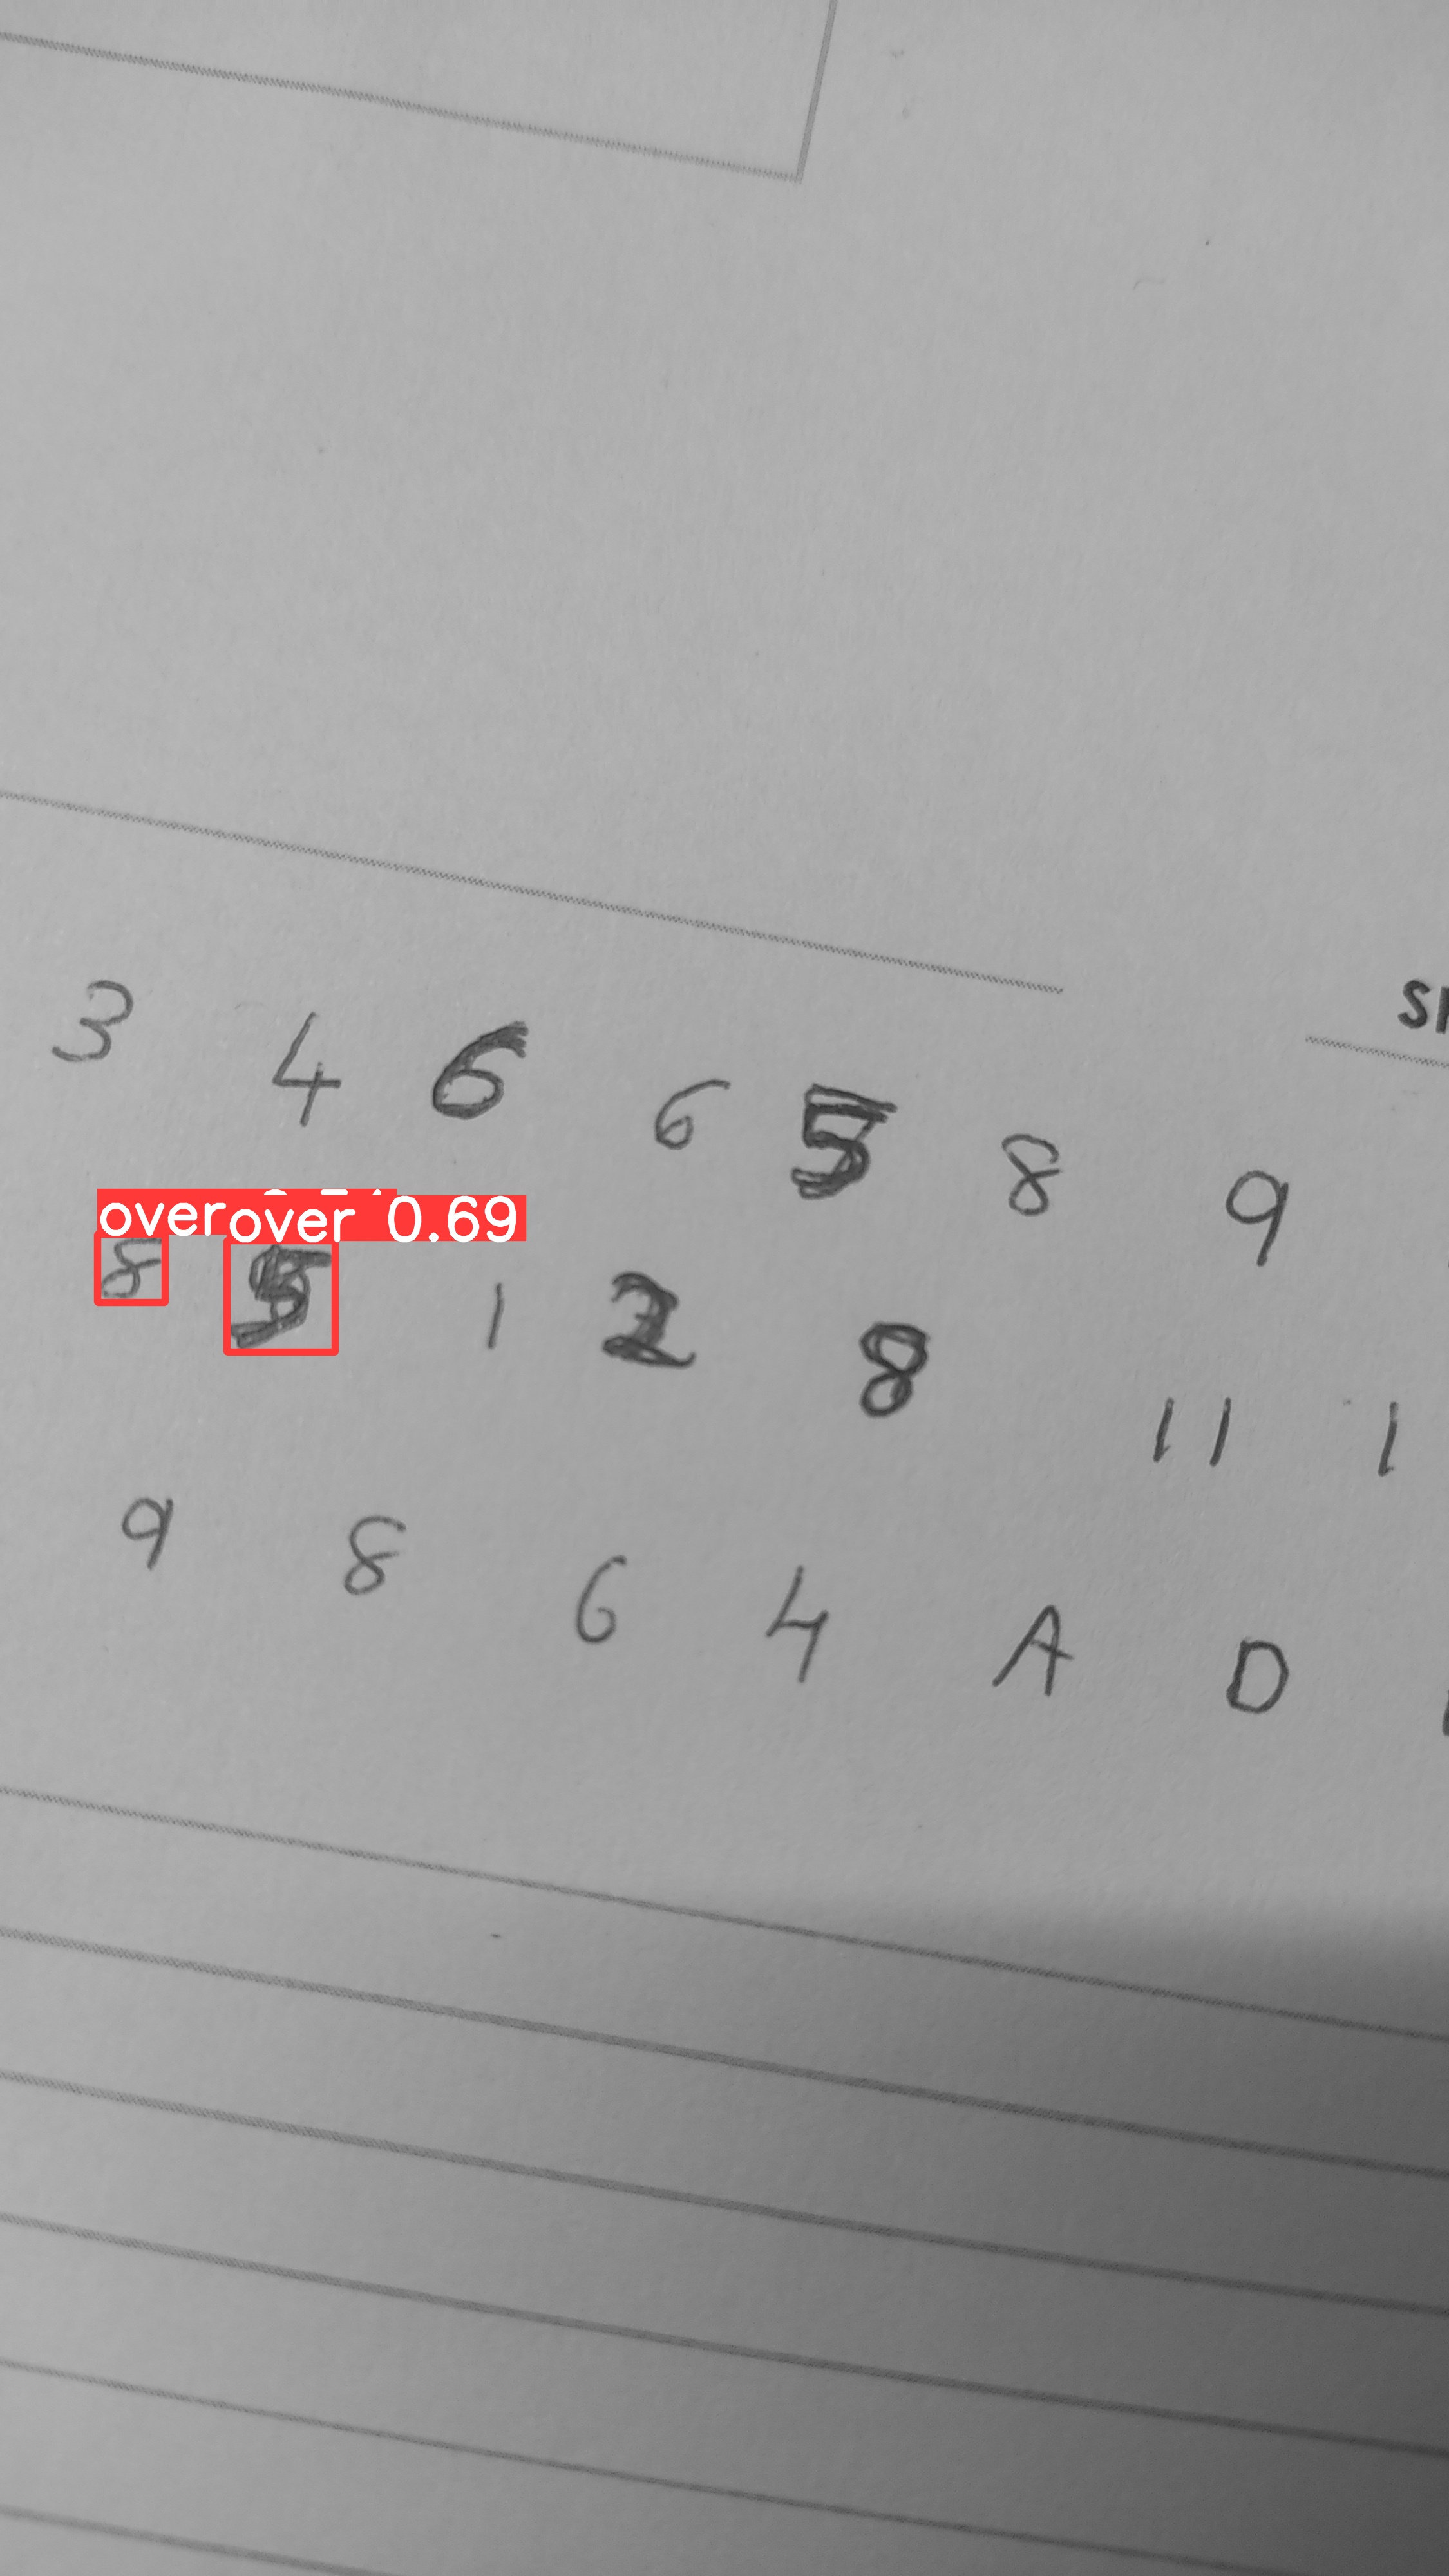 SI
3 4 6 6 5 8 9
over over 0.69
8 5 1 2 8 11 1
9 8 6 4 A D